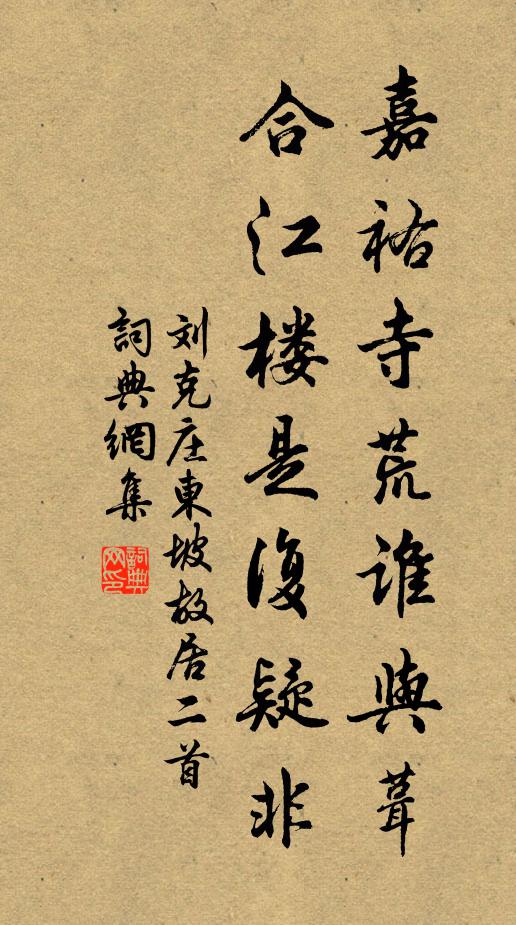 嘉祐寺荒谁與葺
合江楼是復疑非
刘克庄東坡故居二首
詞典網集
詞典网印